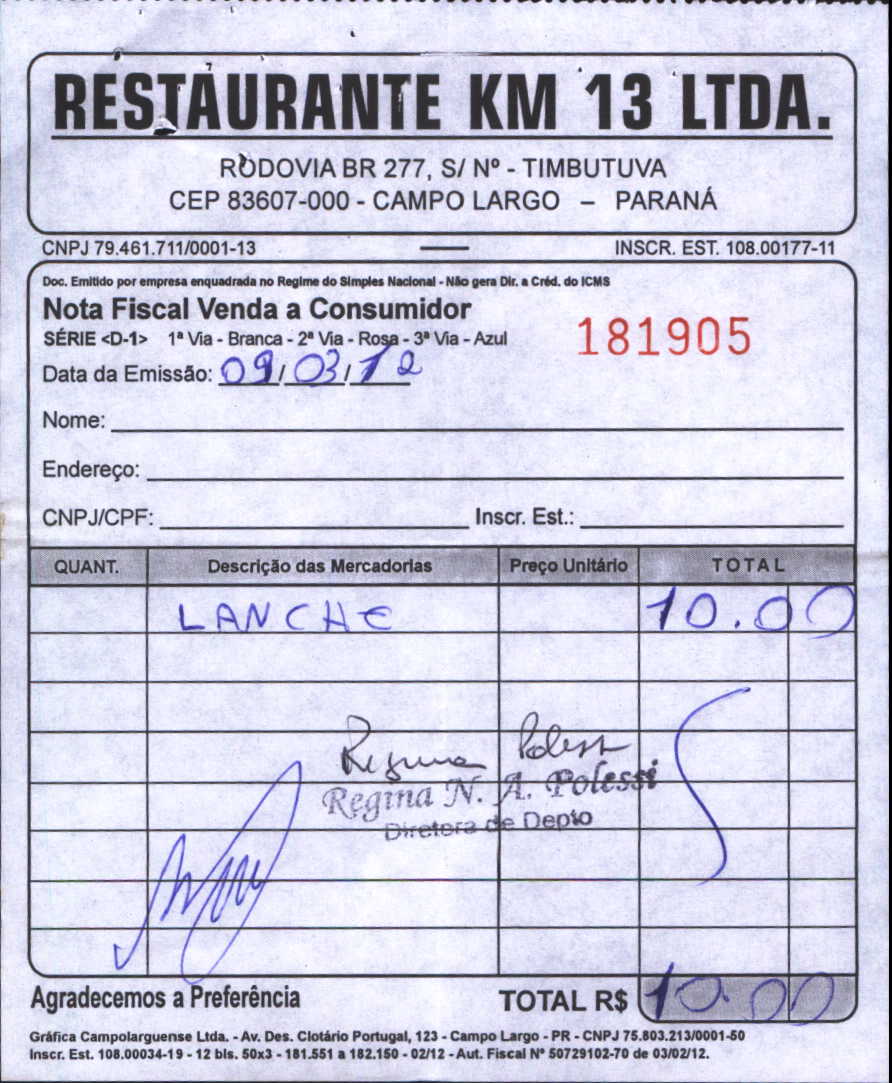 RESTAURANTE KM 13 LTDA.
RODOVIA BR 277, S/ Nº - TIMBUTUVA
CEP 83607-000 - CAMPO LARGO – PARANÁ
CNPJ 79.461.711/0001-13 INSCR. EST. 108.00177-11
Doc. Emitido por empresa enquadrada no Regime do Simples Nacional - Não gera Dir. a Créd. do ICMS
Nota Fiscal Venda a Consumidor
SÉRIE <D-1> 1ª Via - Branca - 2ª Via - Rosa - 3ª Via - Azul 181905
Data da Emissão: 09/03/12
Nome:
Endereço:
CNPJ/CPF: Inscr. Est.:
QUANT. Descrição das Mercadorias Preço Unitário TOTAL
LANCHE 10.00
Regina Polessi
Regina N. A. Polessi
Diretora de Depto
Agradecemos a Preferência TOTAL R$ 10.00
Gráfica Campolarguense Ltda. - Av. Des. Clotário Portugal, 123 - Campo Largo - PR - CNPJ 75.803.213/0001-50
Inscr. Est. 108.00034-19 - 12 bls. 50x3 - 181.551 a 182.150 - 02/12 - Aut. Fiscal Nº 50729102-70 de 03/02/12.